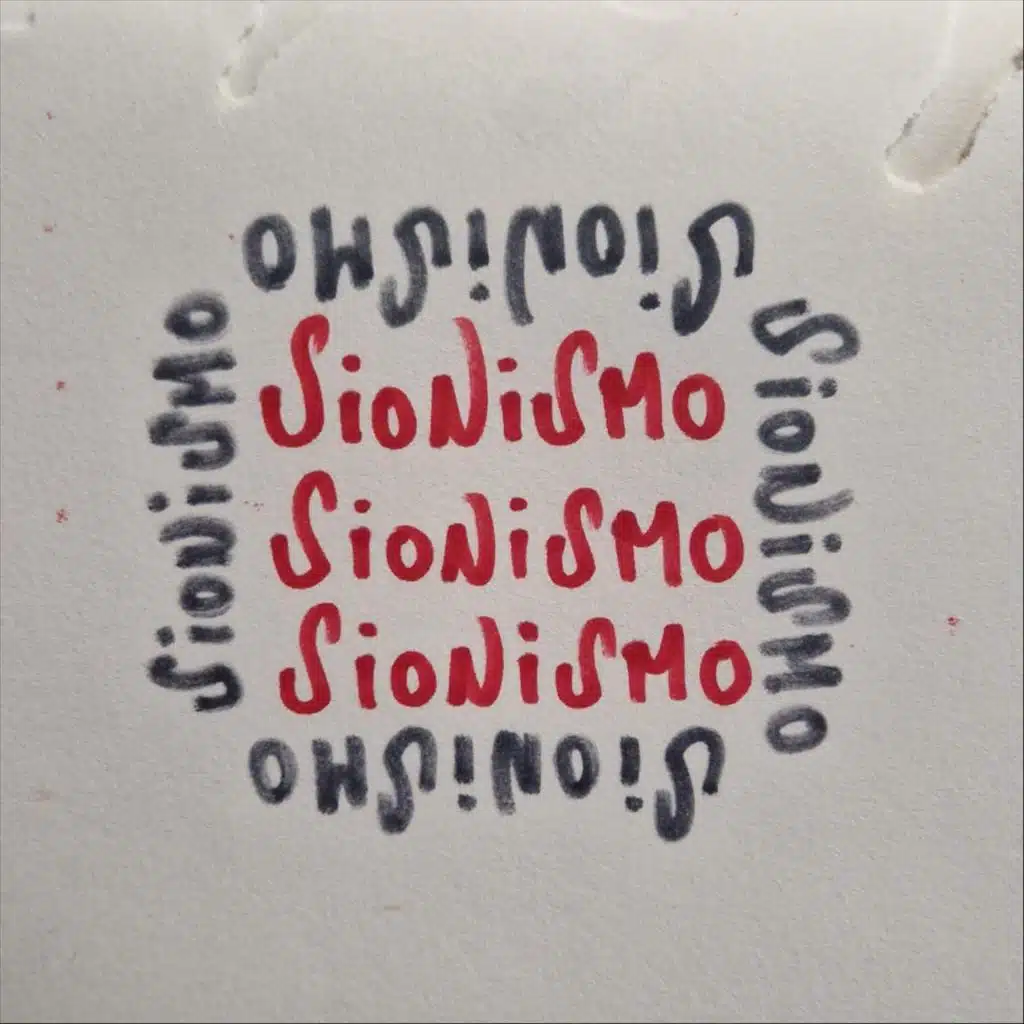 SioNiSMO
SioNiSMO
SioNiSMO
SioNiSMO
SioNiSMO
SioNiSMO
SioNiSMO